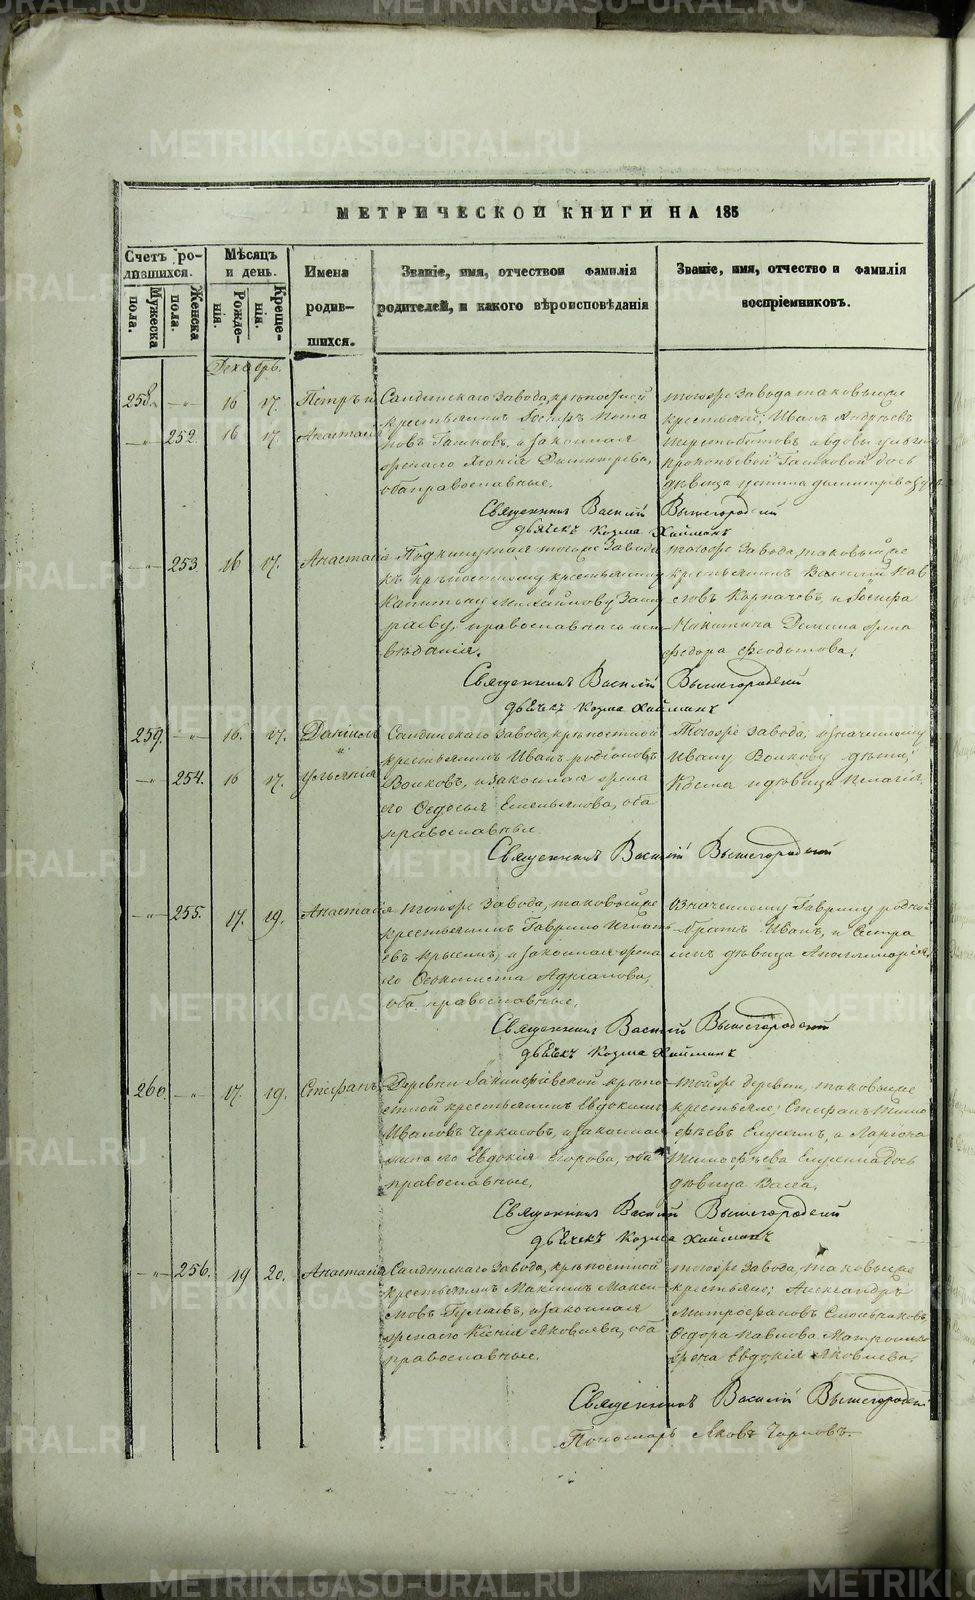 МЕТРИЧЕСКОЙ КНИГИ НА 185
Счетъ ро-
дившихся.
Мѣсяцъ
и день.
Имена
родив-
шихся.
Званіе, имя, отчествои фамилія
родителей, и какого вѣроисповѣданія
Званіе, имя, отчество и фамилія
воспріемниковъ.
Мужеска
пола.
Женска
пола.
Рожде-
нія.
Креще-
нія.
Декабрь.
258. 16 17. Петръ и
252. 16 17. Анастасія
Салдинскаго Завода, крѣпостной
крестьянинъ Іосифъ Пота
повъ и законная
жена его Дмитріева,
оба православные.
тогоже Завода таковыеже
крестьяне: Иванъ Андреевъ
и вдовы
дочь
дѣвица
Священникъ Василій Вышегородскій
дьячекъ Козма Хайминъ
253 16 17. Анастасія
Подкинутая тогоже Завода
къ крѣпостному крестьянину
Капитону Михайлову
православнаго испо
вѣданія.
тогоже Завода, таковыйже
крестьянинъ Василій Пав
ловъ и Іосифа
Никитина жена
Федора Федотова.
Священникъ Василій Вышегородскій
дьячекъ Козма Хайминъ
259. 16. 17. Даніилъ
и
254. 16 17. Ульянія
Салдинскаго Завода, крѣпостной
крестьянинъ Иванъ Родіоновъ
Волковъ, и законная жена
его Федосья Емельянова, оба
православные.
Тогоже Завода, означенному
Ивану Волкову дѣти:
Косма и дѣвица Пелагія.
Священникъ Василій Вышегородскій
255. 17. 19. Анастасія
тогоже Завода, таковыйже
крестьянинъ Гаврило Игнать
евъ и законная жена
его Адріанова,
оба православные.
Означенному Гаврилу родной
братъ Иванъ, и Сестра
дѣвица
Священникъ Василій Вышегородскій
дьячекъ Козма Хайминъ
260. 17. 19. Стефанъ
Деревни крѣпо
стной крестьянинъ Евдокимъ
Ивановъ Черкасовъ, и законная
жена его Евдокія Егорова, оба
православные.
тойже деревни, таковыеже
крестьяне: Стефанъ Тимо
фѣевъ и Ларіона
Тимофѣева дочь
дѣвица Васса.
Священникъ Василій Вышегородскій
дьячекъ Козма Хайминъ
256. 19 20. Анастасія
Салдинскаго Завода, крѣпостной
крестьянинъ Максимъ Макси
мовъ Гуляевъ, и законная
жена его Ксенія Яковлева, оба
православные.
тогоже Завода, таковыеже
крестьяне: Александръ
Митрофановъ
Федора Павлова
жена Евдокія Яковлева.
Священникъ Василій Вышегородскій
Пономарь Яковъ
METRIKI.GASO-URAL.RU